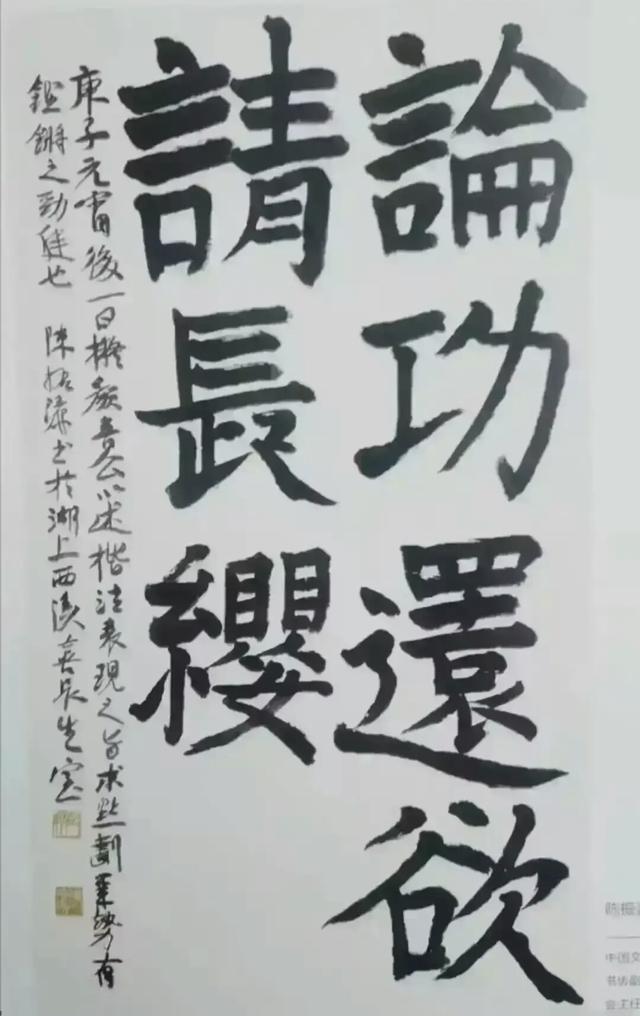 論功還欲
請長纓
庚子元宵後一日擬魯公以述楷法表現之旨求點劃筆勢有
鏗鏘之勁健也 陳振濂書於湖上西溪喜長生室
陈振
中国文
书协副
会主任